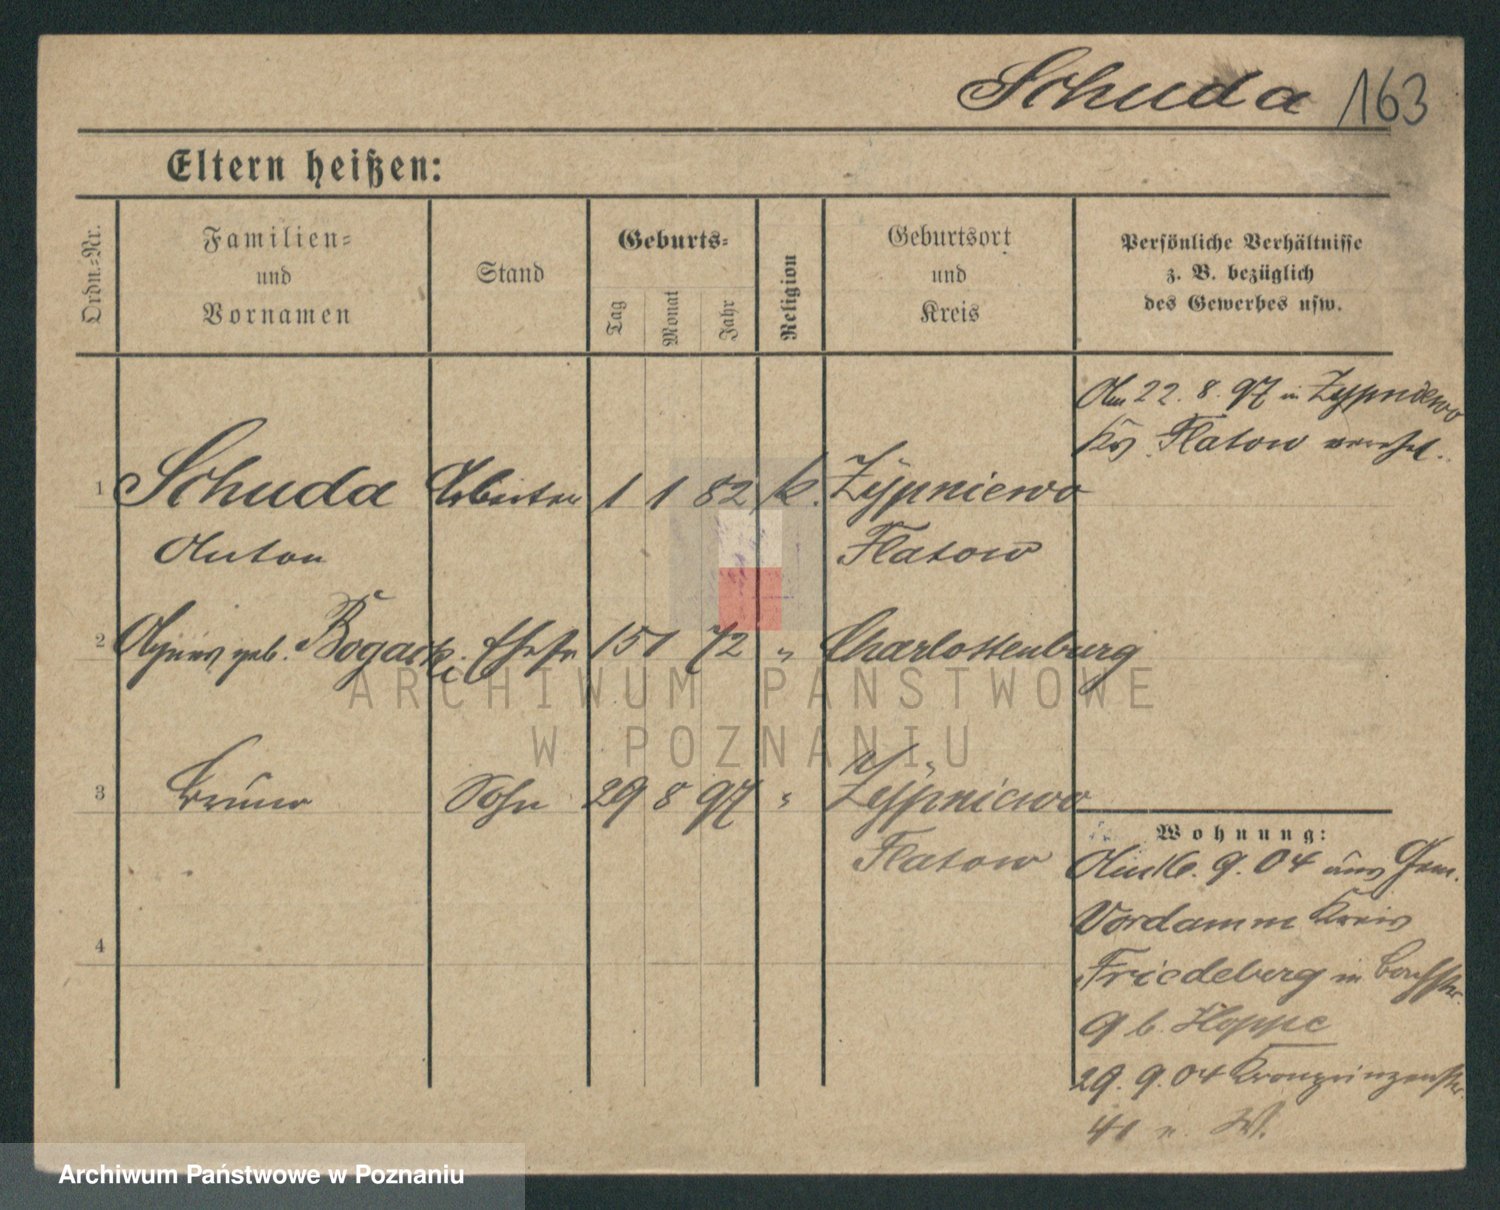 Schuda 163
Eltern heißen:
Ordn.-Nr.
Familien-
und
Vornamen
Stand
Geburts-
Tag
Monat
Jahr
Religion
Geburtsort
und
Kreis
Persönliche Verhältnisse
z. B. bezüglich
des Gewerbes usw.
Am 22. 8. 97 in Zypniewo
Kr. Flatow verehel.
1 Schuda Arbeiter 1 1 82 k. Zÿpniewo
Anton Flatow
2 Agnes geb. Bogacki Ehefr 15 1 72 " Charlottenburg
3 Bruno Sohn 29 8 97 " Zÿpniewo
Flatow
4
Wohnung:
9. 04 aus Gem.
Vordamm Kreis
Friedeberg in
9 b. Hoppe
29. 9. 04 Kronprinzenstr.
41 W.
ARCHIWUM PAŃSTWOWE
W POZNANIU
Archiwum Państwowe w Poznaniu